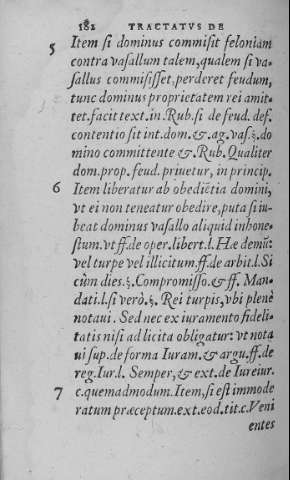 182 TRACTATVS DE
5 Item si dominus commisit feloniam
contra vasallum talem, qualem si va-
sallus commisisset, perderet feudum,
tunc dominus proprietatem rei amit-
tet. facit text. in. Rub. si de feud. def.
contentio sit int. dom. &. ag. vas. §. do
mino committente &. Rub. Qualiter
dom. prop. feud. priuetur, in princip.
6 Item liberatur ab obediẽtia domini,
vt ei non teneatur obedire, puta si iu-
beat dominus vasallo aliquid inhone-
stum. vt ff. de oper. libert. l. Hæ demũ:
vel turpe vel illicitum. ff. de arbit. l. Si
cùm dies. §. Compromisso. & ff. Man-
dati. l. si verò. §. Rei turpis, vbi plenè
notaui. Sed nec ex iuramento fideli-
tatis nisi ad licita obligatur: vt nota
ui sup. de forma Iuram. & argu. ff. de
reg. Iur. l. Semper, & ext. de Iureiur.
7 c. quemadmodum. Item, si est immode
ratum præceptum. ext. eod. tit. c. Veni
entes